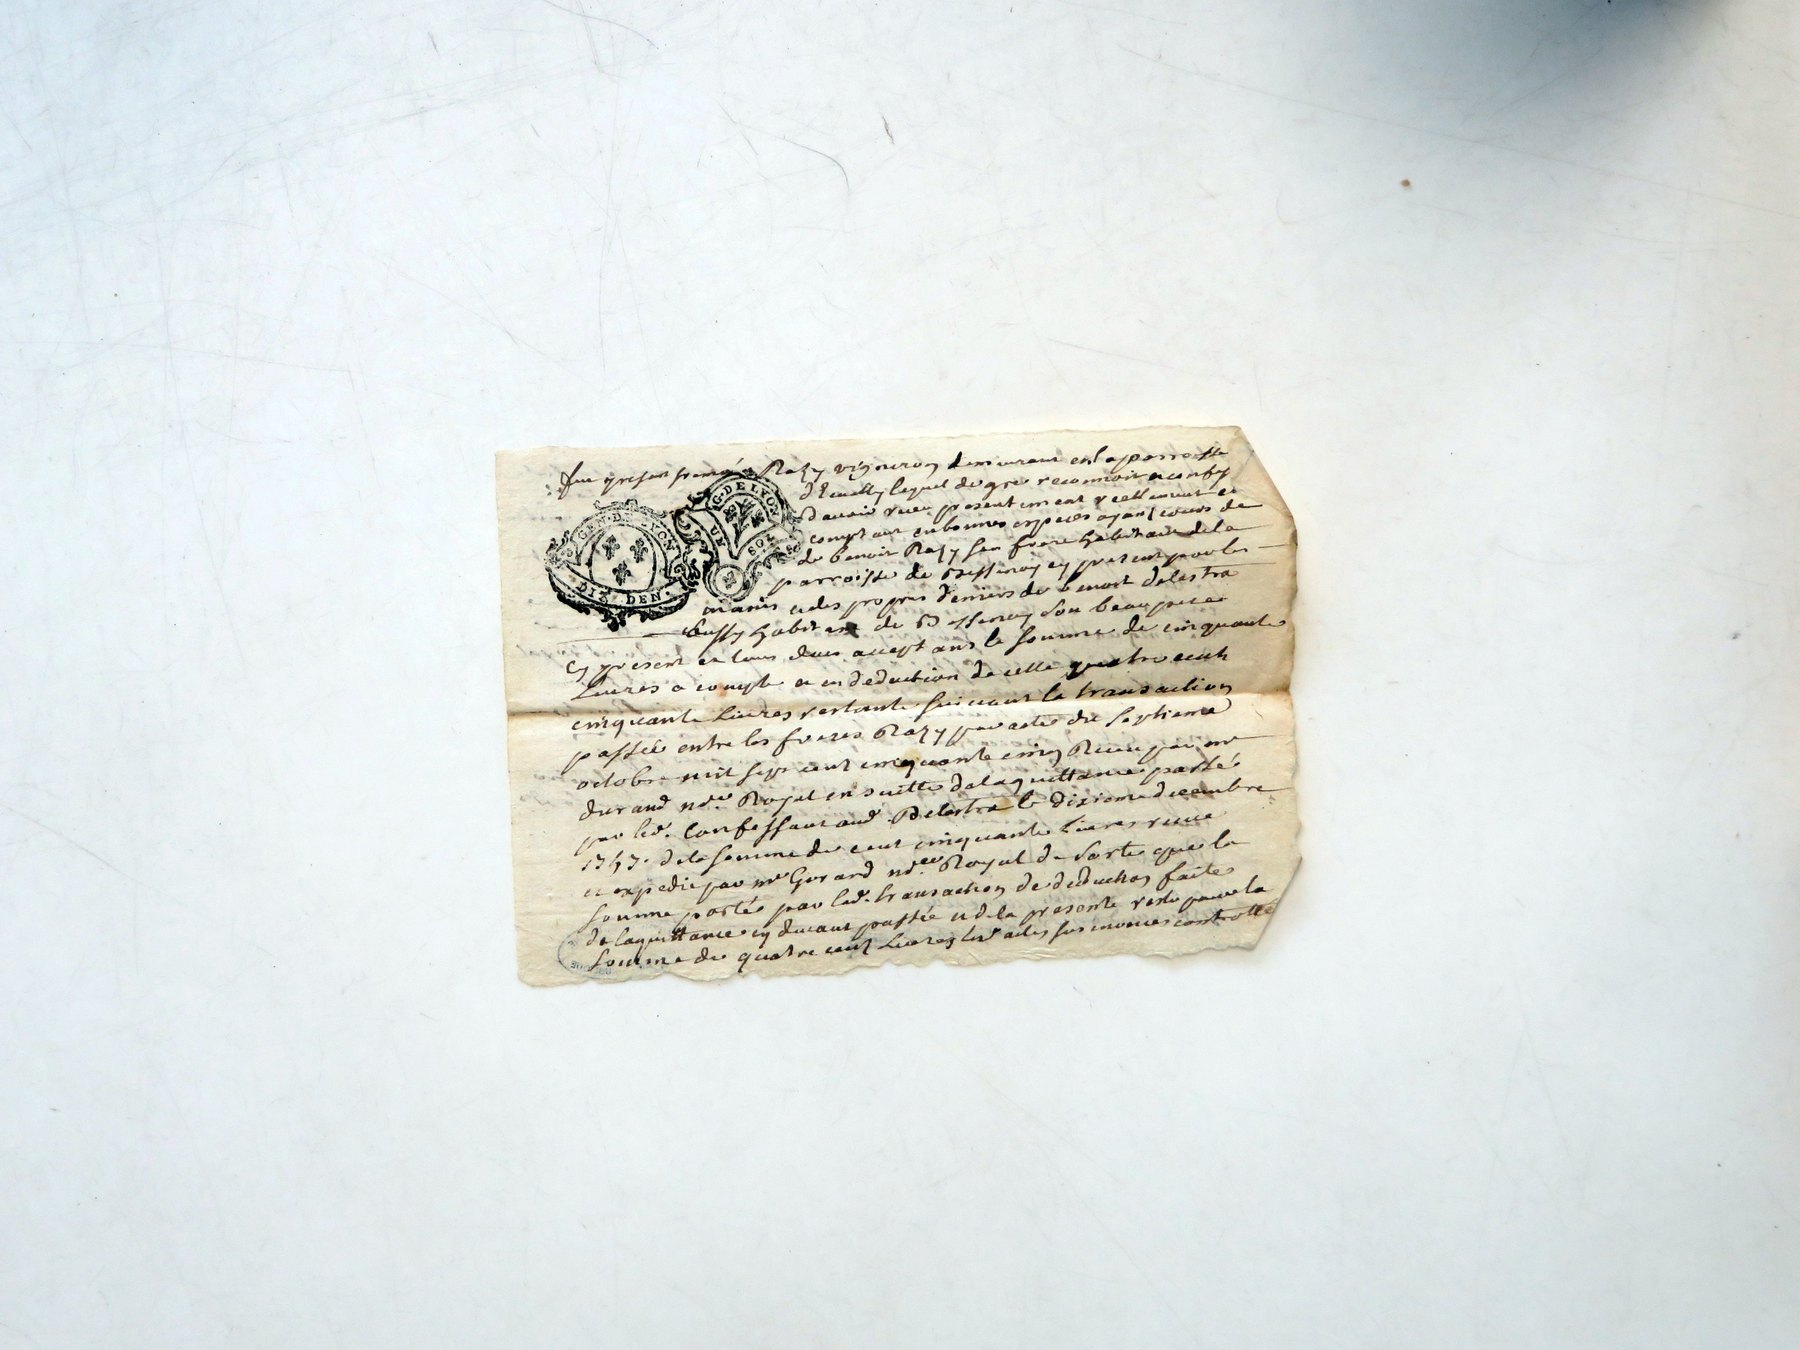 fut present francois Razy vigneron demeurant en la parroisse
d'Eculty lequel de gre reconnoit et confes
d'avoir receu presentement reellement et
comptant en bonnes especes ayant cours de
de benoit Razy son frere habitant de la
parroisse de Bessenay cy present par les
mains et des propres deniers de benoit delestra
habitant de Bessenay son beau pere
cy present et tous deux acceptans la somme de cinquante
Livres a compte et en deduction de celle quatre cent
cinquante Livres restante suivant la transaction
passée entre les freres Razy par acte du septieme
octobre mil sept cent cinquante cinq Receu par me
durand nore. Royal en suitte de la quittance passée
par led. Confessant aud. Delestra le dixieme decembre
de la somme de cent cinquante Livres receue
et expedie par me Gerard nore Royal de sorte que la
somme portée par lad. transaction de deduction faite
de la quittance cy devant passée et de la presente reste pour la
somme de quatre cent Livres lesd. actes sus enoncés controllé
G. GEN. DE LYON
DIX. DEN.
G. DE LYON
UN SOL